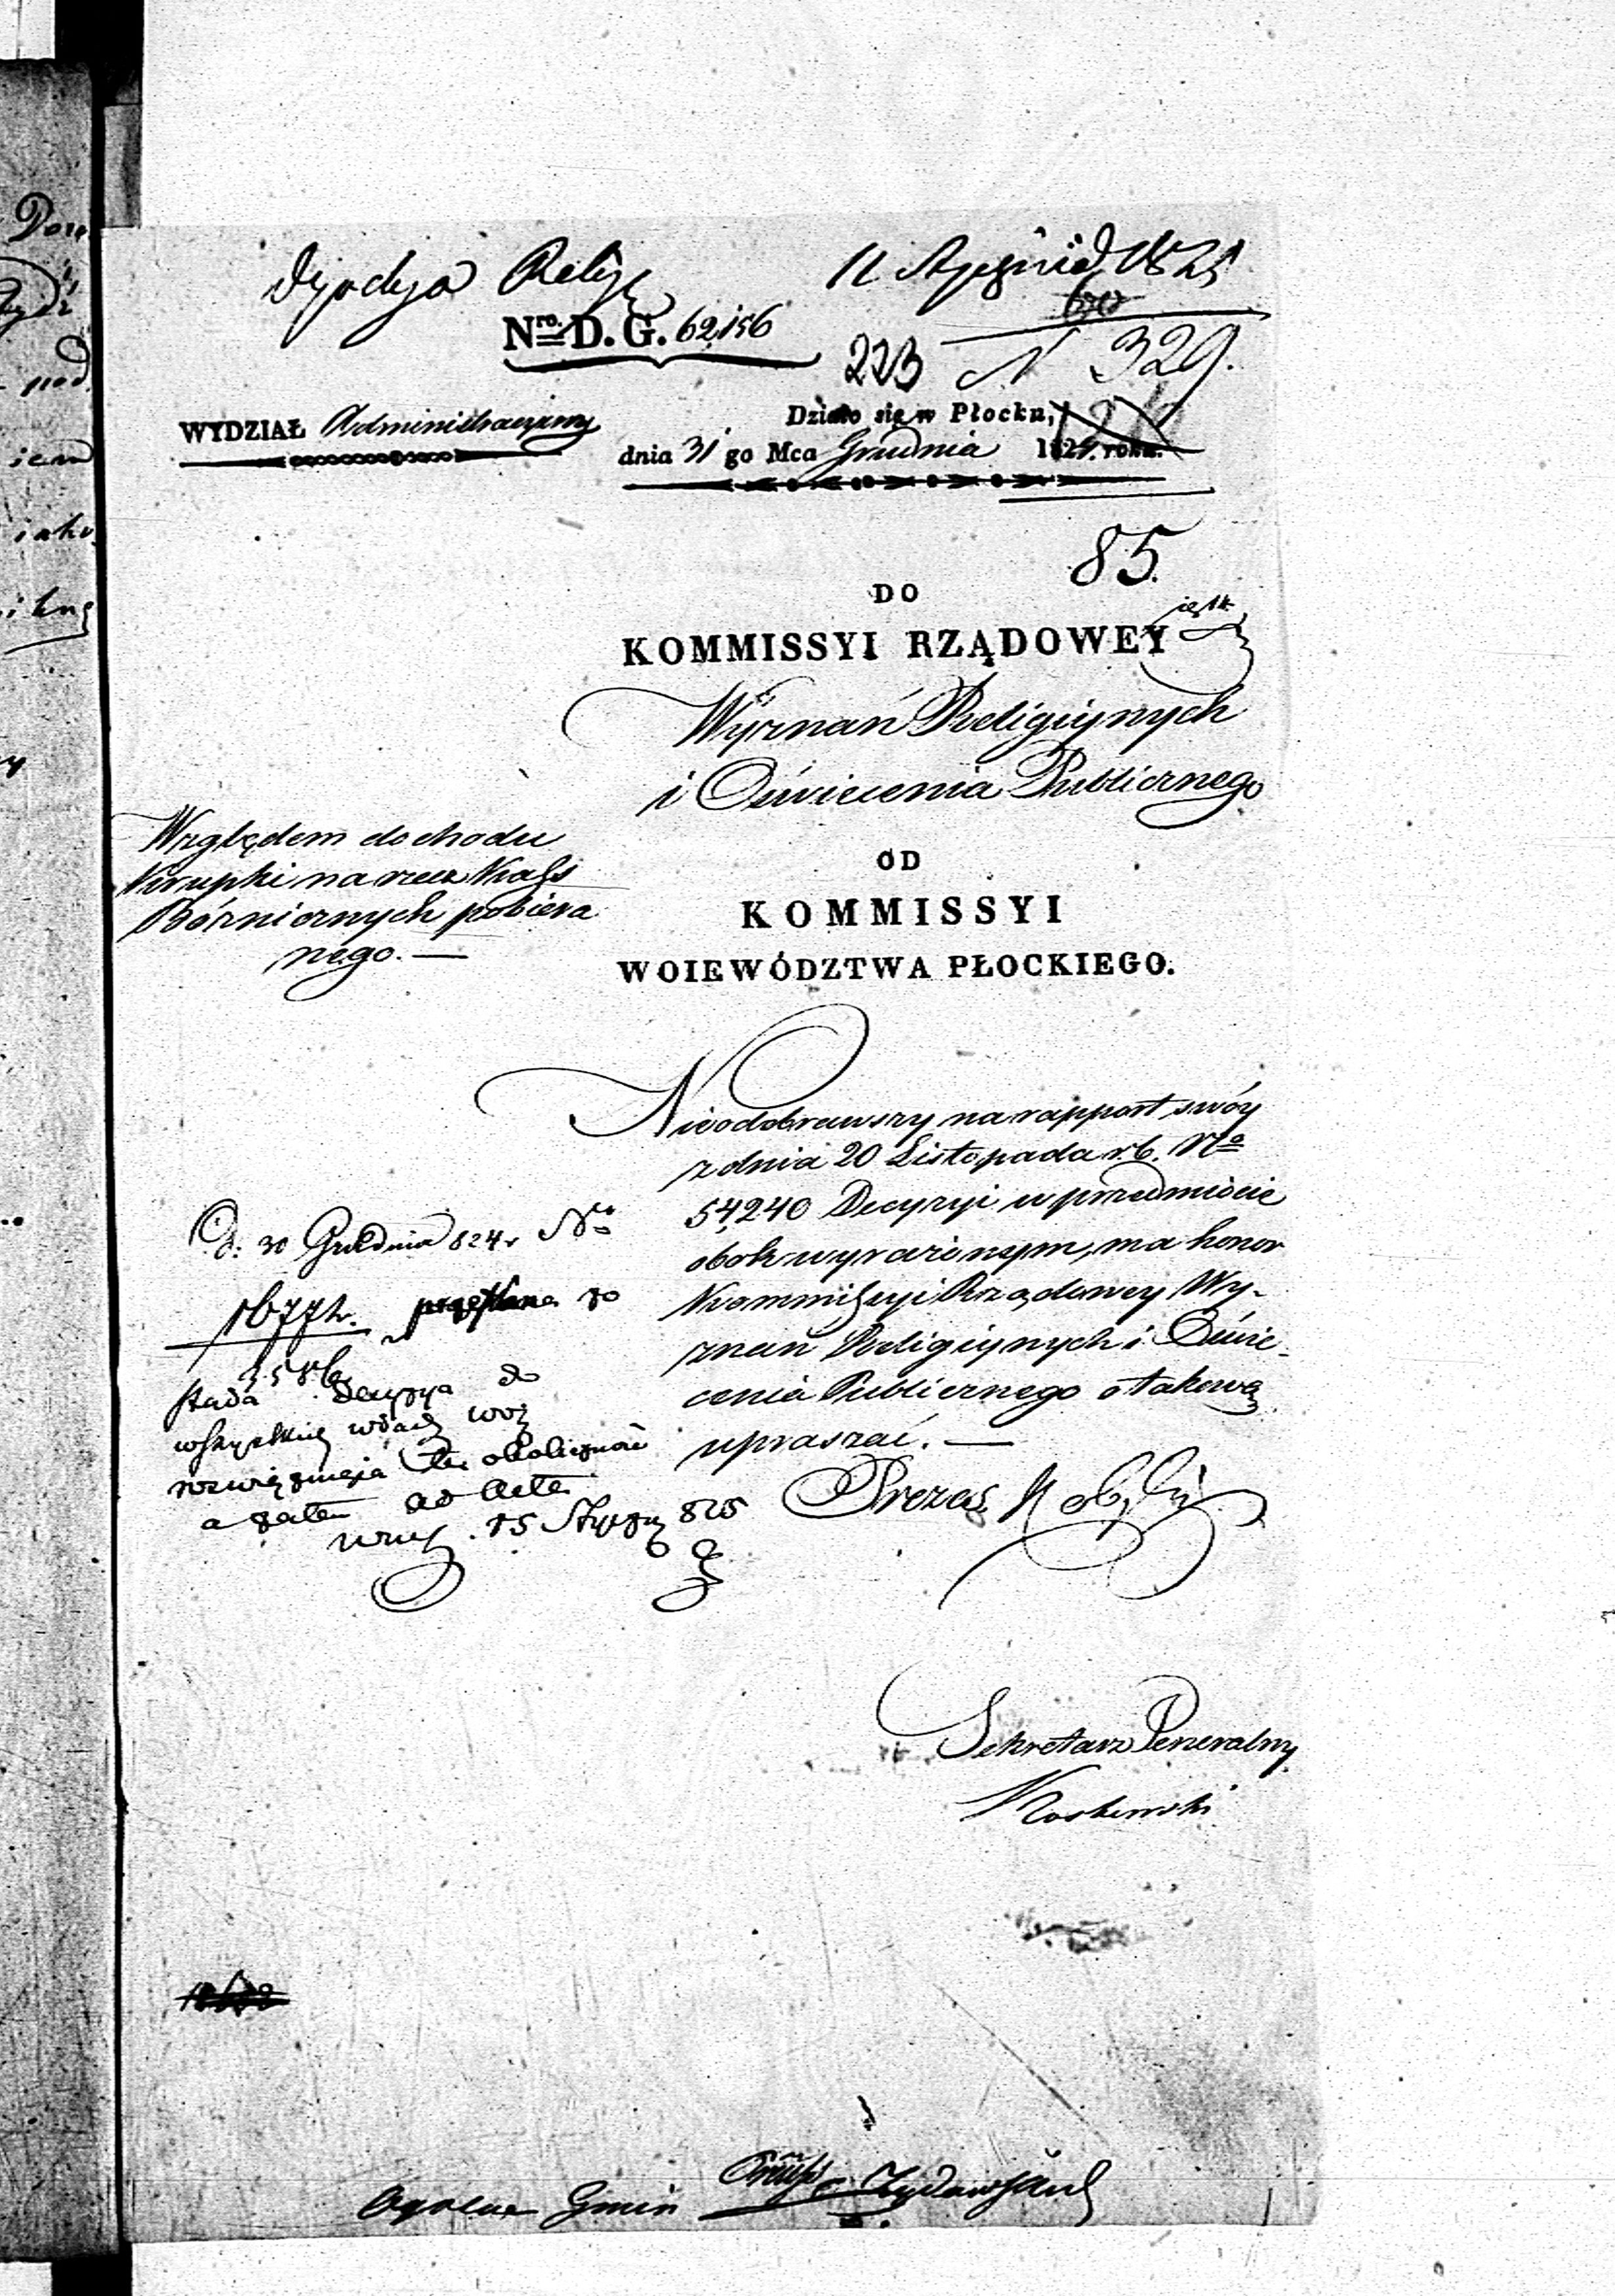 Dyrekcya Relig
11 Stycznia 1825
Nro. D. G. 62,156
223 N 329.
WYDZIAŁ Administracyiny
Działo się w Płocku,
dnia 31 go Mca Grudnia 1824. roku.
85.
DO
KOMMISSYI RZĄDOWEY
Wyznań Religiynych
i Oświecenia Publicznego
Względem dochodu
Krupki na rzecz Kass
Bóżnicznych pobiera
nego. —
OD
KOMMISSYI
WOIEWÓDZTWA PŁOCKIEGO.
Nieodebrawszy na rapport swóy
z dnia 20 Listopada r. b. No
54,240 Decyzyi w przedmiocie
obok wyrażonym, ma honor
Kommissyi Rządowey Wy-
znań Religiynych i Oświe-
cenia Publicznego o takową
upraszać. —
D: 30 Grudnia 824 r No
1677
Decyzya do
wszystkich
rozwiązuje tę okoliczność
a zatem ad acta
15 Stycz 825
Prezes
Sekretarz Generalny
Ogolne Gmin Żydowskich